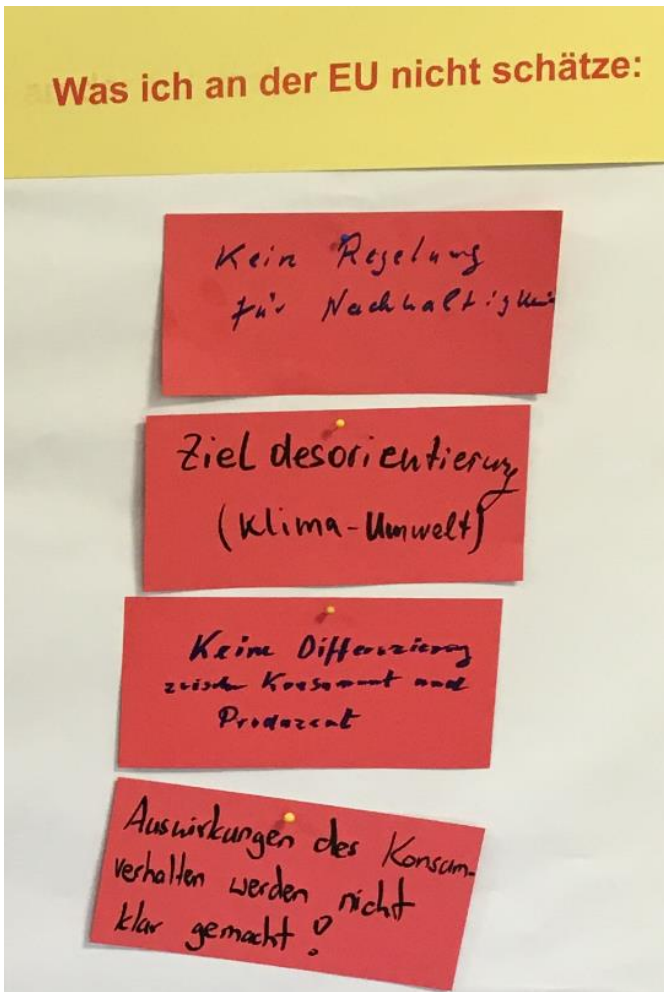 Was ich an der EU nicht schätze:
Kein Regelung
für Nachhaltigkeit
Ziel desorientierung
(Klima-Umwelt)
Keine Differenzierung
zwischen Konsument und
Produzent
Auswirkungen des Konsum-
verhalten werden nicht
klar gemacht!